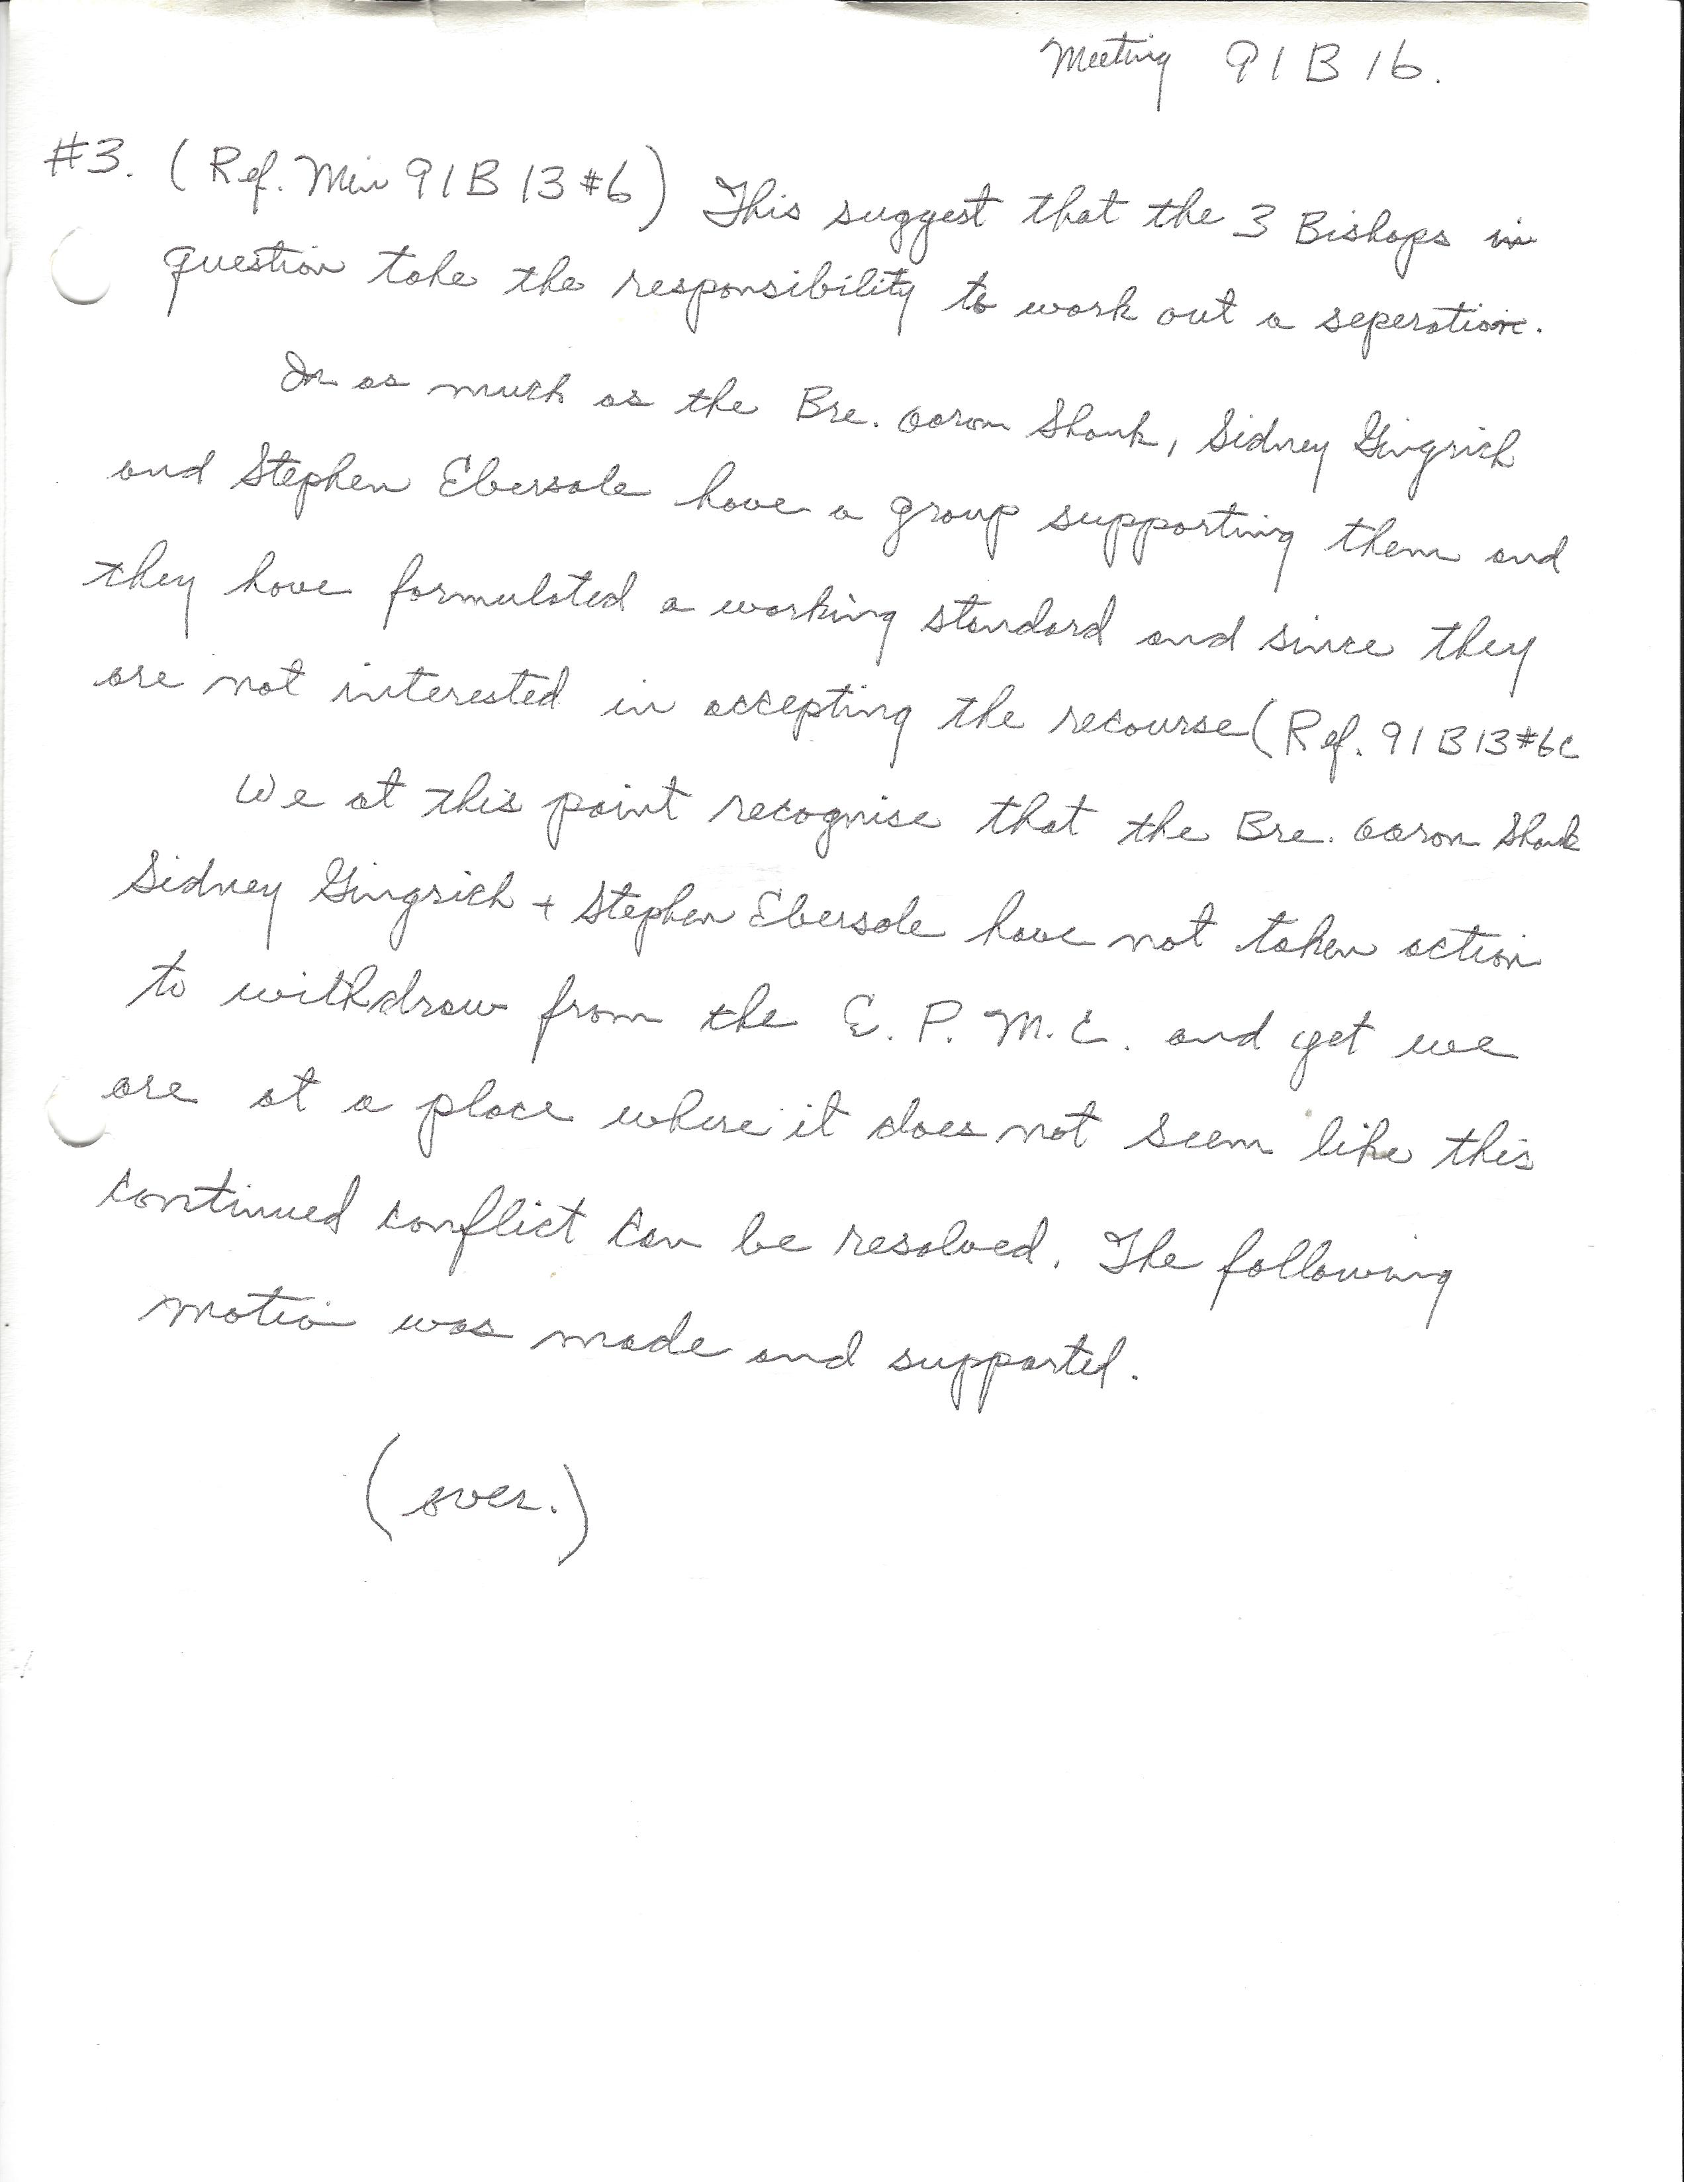 Meeting 91B16.
#3. (Ref. Min 91B13#6) This suggest that the 3 Bishops in
question take the responsibility to work out a seperation.
In as much as the Bre. Aaron Shank, Sidney Gingrich
and Stephen Ebersole have a group supporting them and
they have formulated a working standard and since they
are not interested in accepting the recourse (Ref. 91B13#6c
We at this point recognise that the Bre. Aaron Shank
Sidney Gingrich + Stephen Ebersole have not taken action
to withdraw from the E.P.M.C. and yet we
are at a place where it does not seem like this
continued conflict can be resolved. The following
motion was made and supported.
(over.)